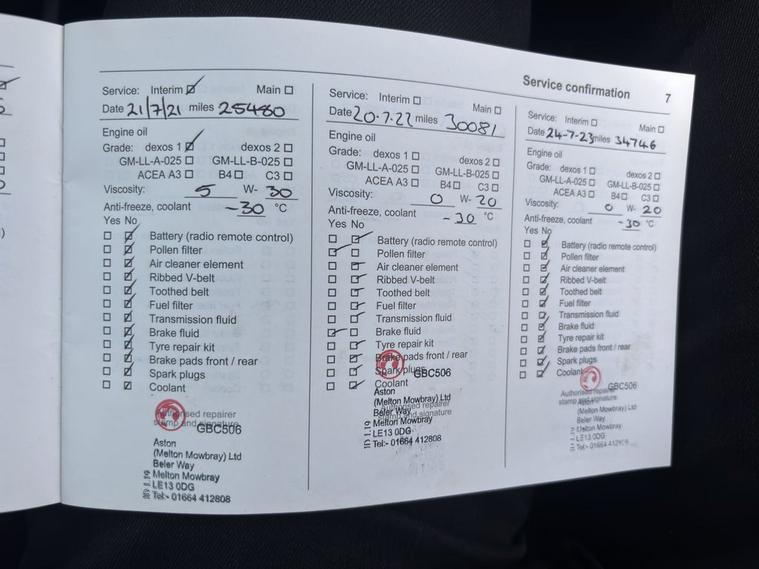 Service confirmation 7
Service: Interim ☑ Main ☐
Date 21/7/21 miles 25480
Engine oil
Grade: dexos 1 ☑ dexos 2 ☐
GM-LL-A-025 ☐ GM-LL-B-025 ☐
ACEA A3 ☐ B4 ☐ C3 ☐
Viscosity: 5 W- 30
Anti-freeze, coolant -30 °C
Yes No
Battery (radio remote control)
Pollen filter
Air cleaner element
Ribbed V-belt
Toothed belt
Fuel filter
Transmission fluid
Brake fluid
Tyre repair kit
Brake pads front / rear
Spark plugs
Coolant
Authorised repairer
stamp and signature
GBC506
Aston
(Melton Mowbray) Ltd
Beler Way
Melton Mowbray
LE13 0DG
Tel:- 01664 412808
Service: Interim ☐ Main ☐
Date 20-7-22 miles 30081
Engine oil
Grade: dexos 1 ☐ dexos 2 ☐
GM-LL-A-025 ☐ GM-LL-B-025 ☐
ACEA A3 ☐ B4 ☐ C3 ☐
Viscosity: 0 W- 20
Anti-freeze, coolant -30 °C
Yes No
Battery (radio remote control)
Pollen filter
Air cleaner element
Ribbed V-belt
Toothed belt
Fuel filter
Transmission fluid
Brake fluid
Tyre repair kit
Brake pads front / rear
Spark plugs
GBC506
Coolant
Authorised repairer
stamp and signature
Aston
(Melton Mowbray) Ltd
Beler Way
Melton Mowbray
LE13 0DG
Tel:- 01664 412808
Service: Interim ☐ Main ☐
Date 24-7-23 miles 34746
Engine oil
Grade: dexos 1 ☐ dexos 2 ☐
GM-LL-A-025 ☐ GM-LL-B-025 ☐
ACEA A3 ☐ B4 ☐ C3 ☐
Viscosity: 0 W- 20
Anti-freeze, coolant -30 °C
Yes No
Battery (radio remote control)
Pollen filter
Air cleaner element
Ribbed V-belt
Toothed belt
Fuel filter
Transmission fluid
Brake fluid
Tyre repair kit
Brake pads front / rear
Spark plugs
Coolant
Authorised repairer
stamp and signature
GBC506
Aston
(Melton Mowbray) Ltd
Beler Way
Melton Mowbray
LE13 0DG
Tel:- 01664